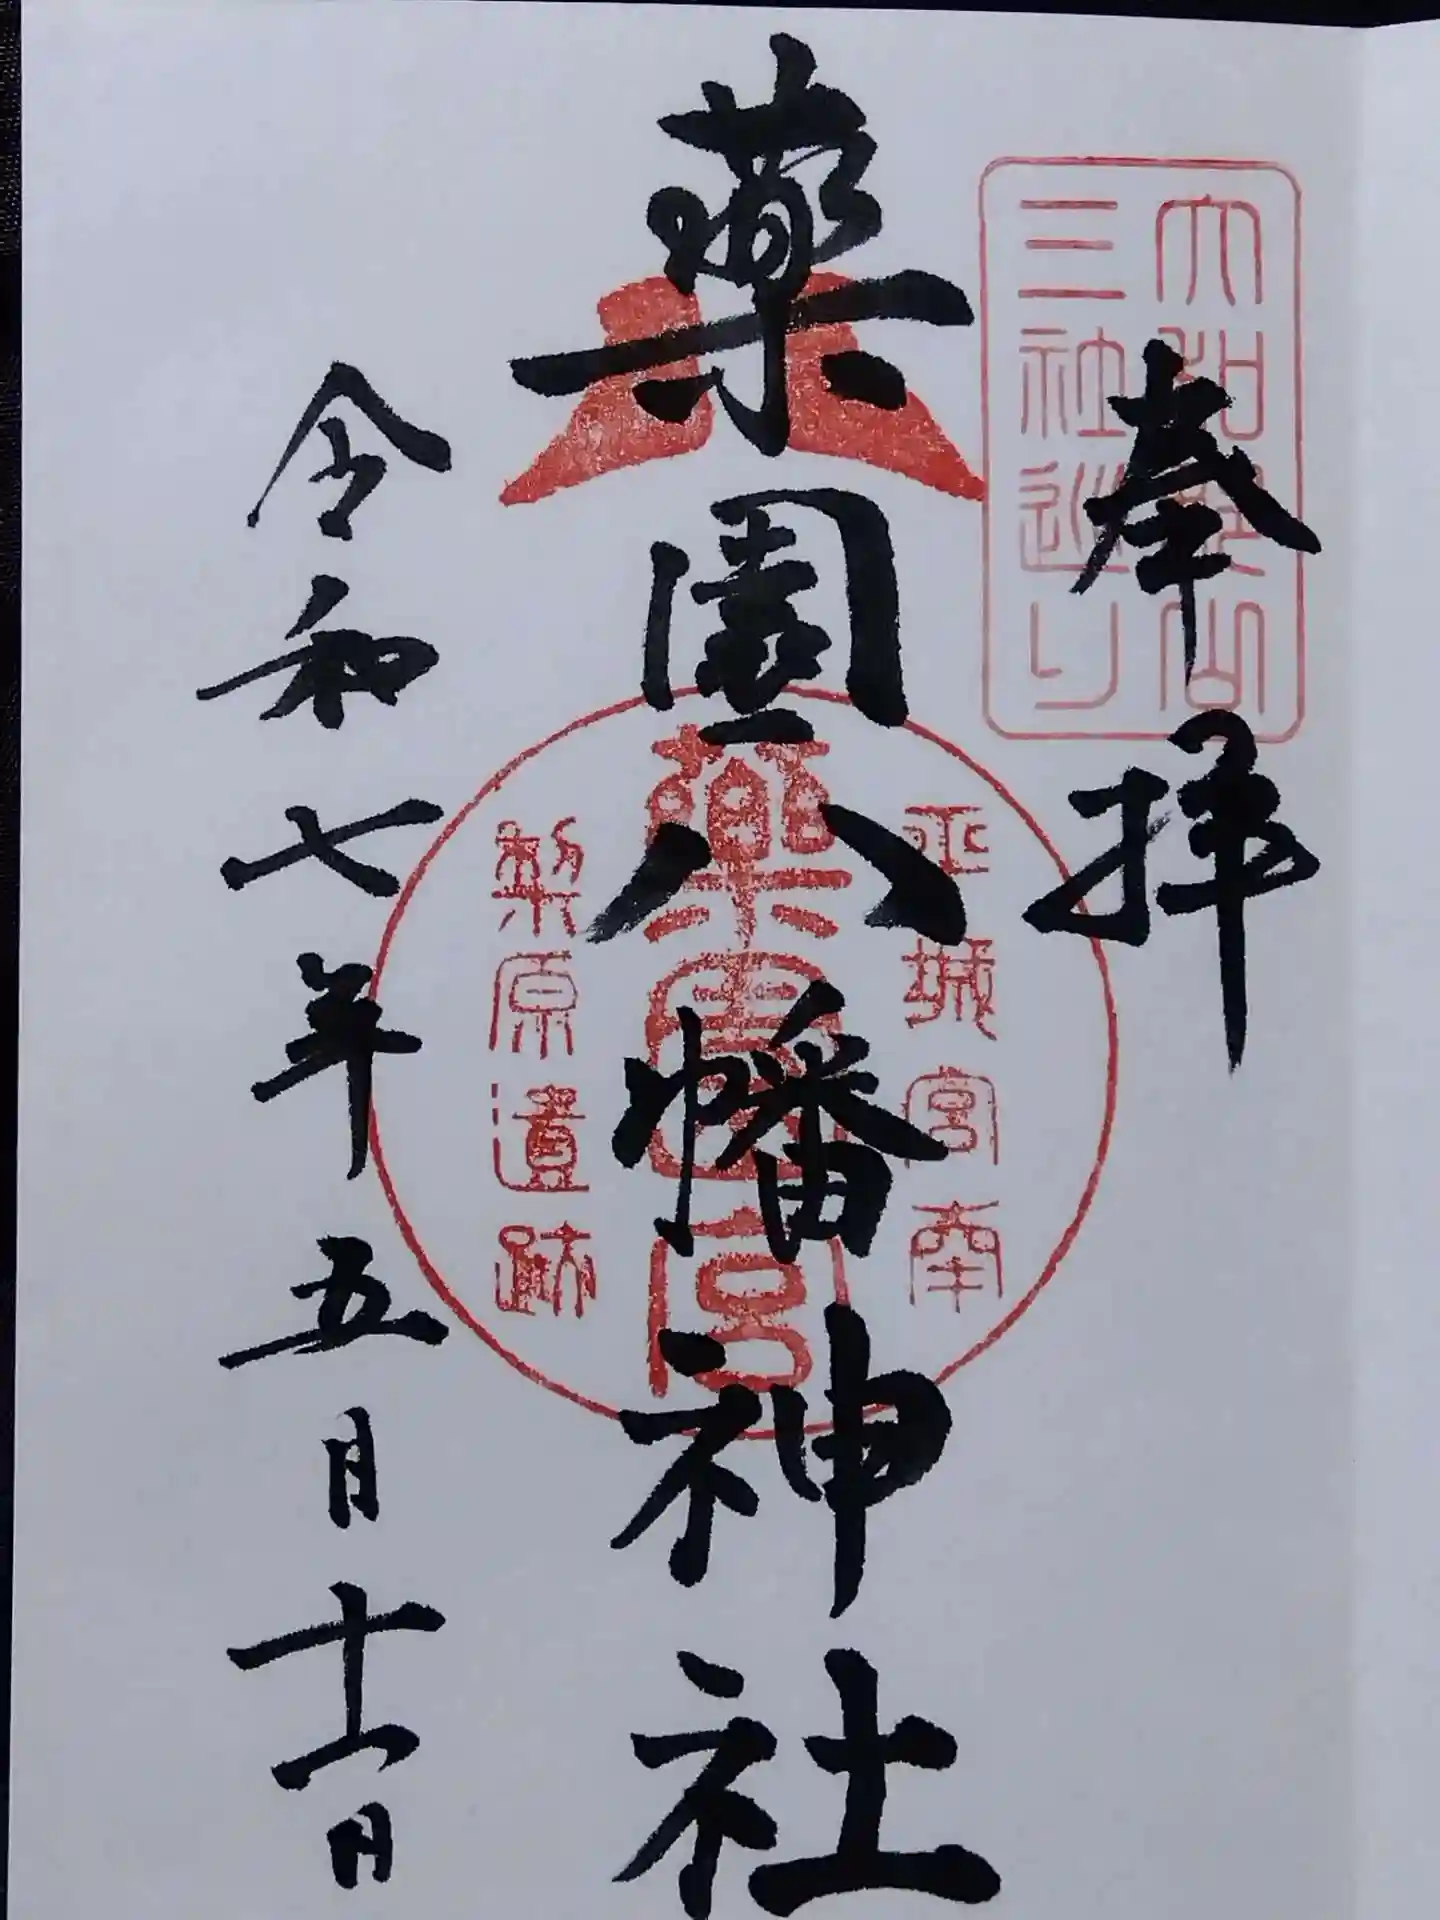 大和郡山
三社巡り
奉拝
平城宮南
薬園宮
梨原遺跡
薬園八幡神社
令和七年五月十一日